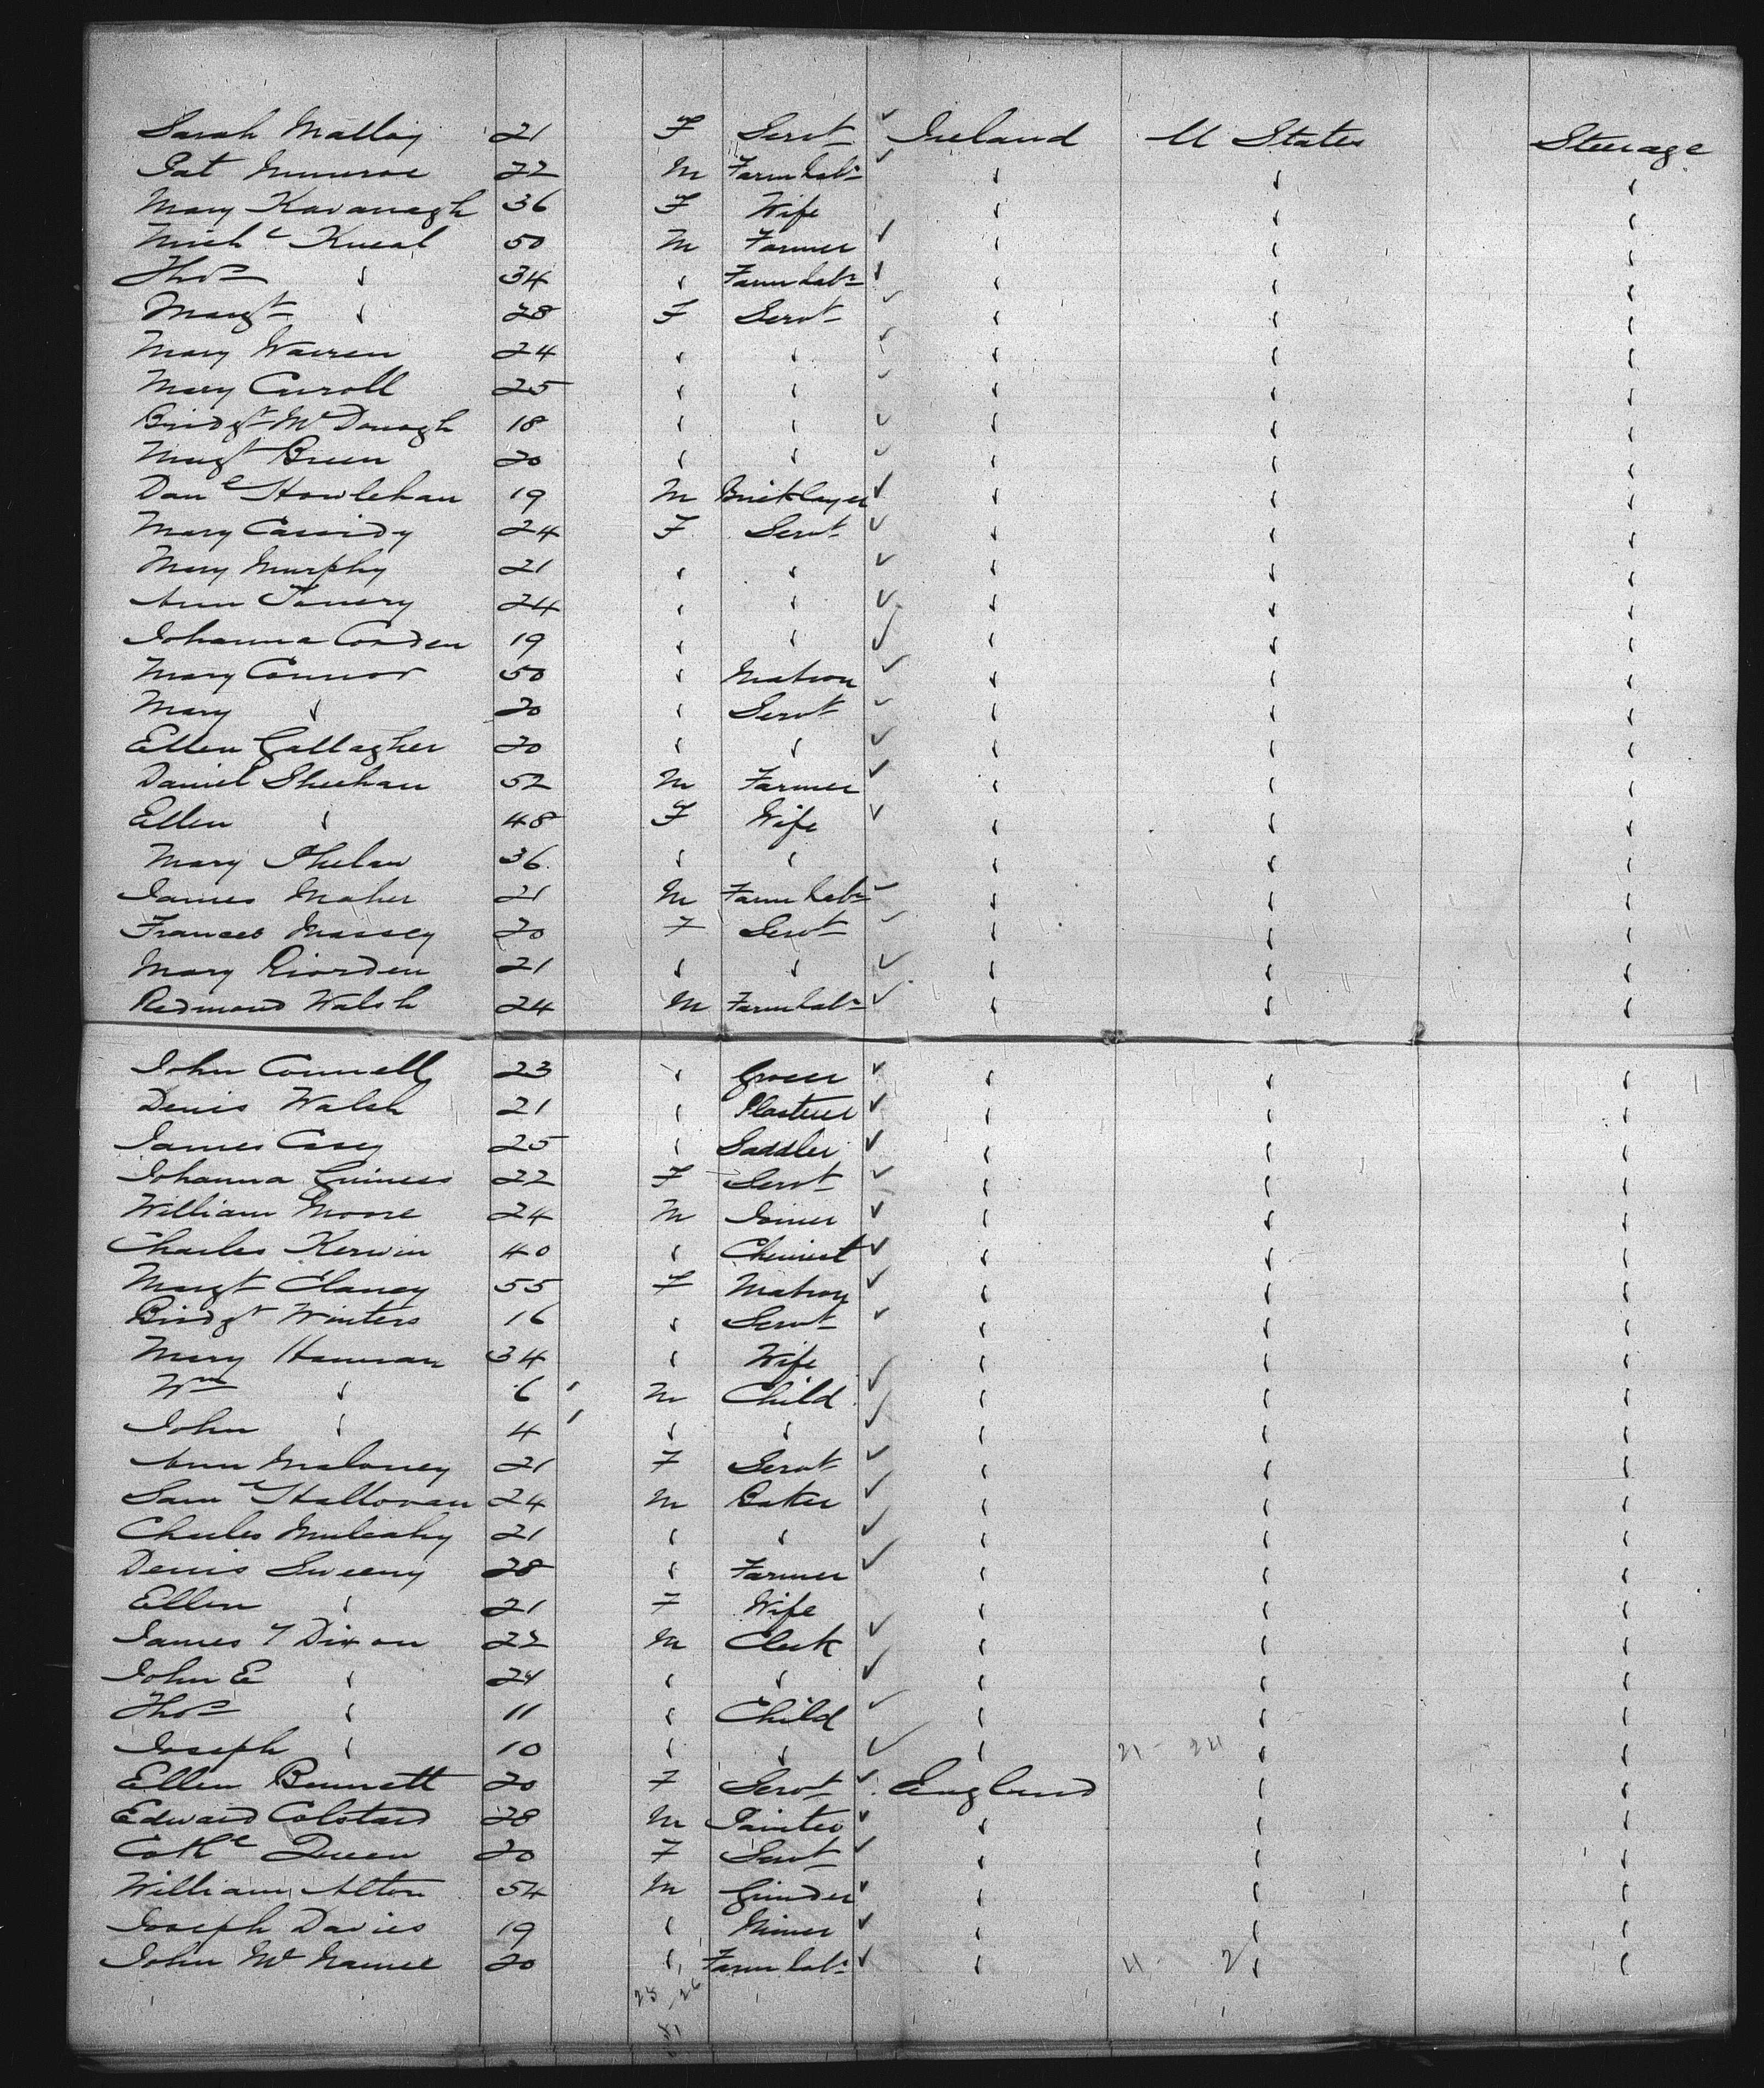 Sarah Malloy 21 F Servt Ireland U States Steerage
Pat Munroe 22 M Farm Labr
Mary Kavanagh 36 F Wife
Michl 50 M Farmer
Thos " 34 " Farm Labr
Margt " 28 F Servt
Mary Warren 24 " "
Mary Carroll 25 " "
Bridgt McDonagh 18 " "
Margt Breen 20 " "
Danl Howlehan 19 M Bricklayer
Mary Cassidy 24 F Servt
Mary Murphy 21 " "
Ann 24 " "
Johanna Corden 19 " "
Mary Connor 50 " Matron
Mary " 20 " Servt
Ellen Gallagher 20 " "
Daniel Sheehan 52 M Farmer
Ellen " 48 F Wife
Mary Phelan 36 " "
James Maher 21 M Farm Labr
Frances Massey 20 F Servt
Mary Riorden 21 " "
Redmond Walsh 24 M Farm Labr
John Connell 23 " Grocer
Denis Walsh 21 " Plasterer
James Casey 25 " Saddler
Johanna Guiness 22 F Servt
William Moore 24 M Joiner
Charles Kerwin 40 " Chemist
Margt Clancy 55 F Matron
Bridgt Winters 16 " Servt
Mary Hannan 34 " Wife
Wm " 6 M Child
John " 4 " "
Ann Maloney 21 F Servt
Saml Halloran 24 M Baker
Charles Mulcahy 21 " "
Denis Sweeny 28 " Farmer
Ellen " 21 F Wife
James T Dixon 22 M Clerk
John E " 24 " "
Thos " 11 " Child
Joseph " 10 " " 21 - 24
Ellen Bennett 20 F Servt England
Edward Colstad 28 M Painter
Cathe Queen 20 F Servt
William Alton 54 M Grinder
Joseph Davies 19 " Miner
John McNamee 20 " Farm Labr
25 - 26